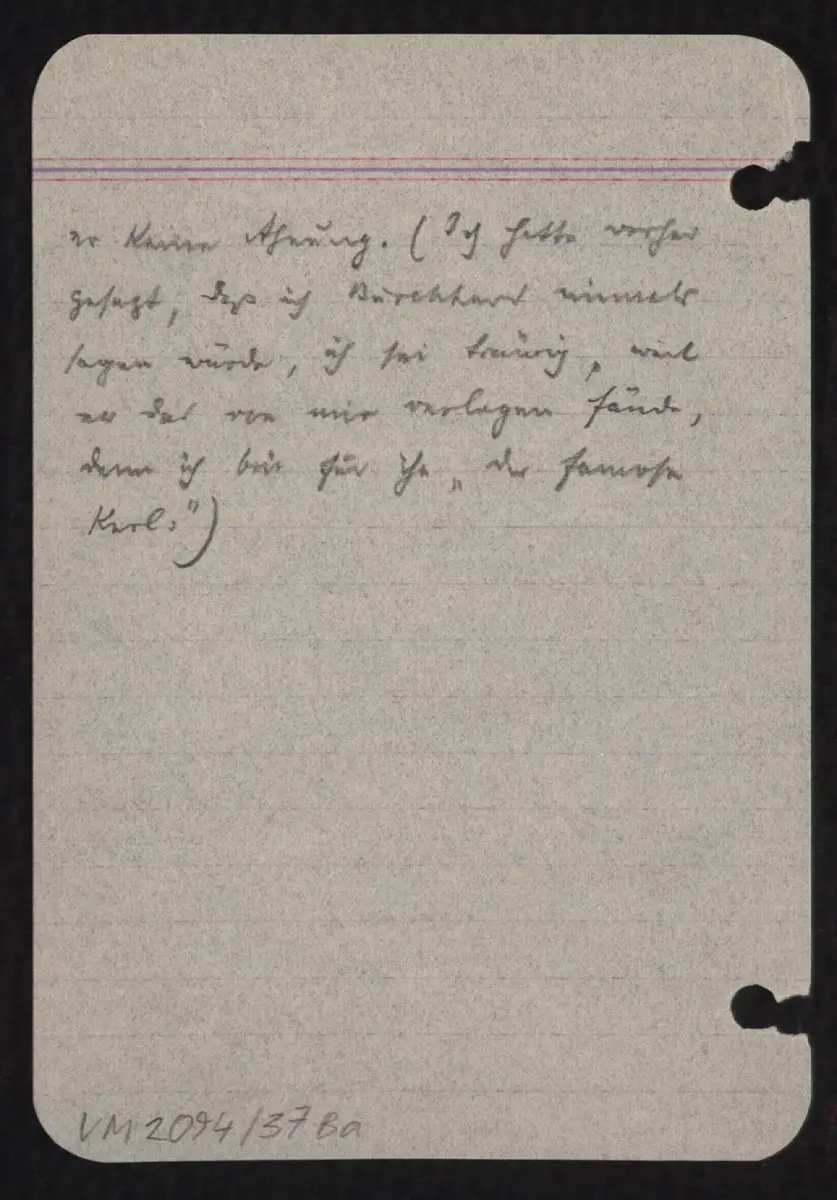 er keine Ahnung. (Ich hatte vorher
gesagt, daß ich Burckhard niemals
sagen würde, ich sei traurig, weil
er das von mir verlogen fände,
denn ich bin für ihn „der famose
Kerl.")
VM 2094/37 Ba